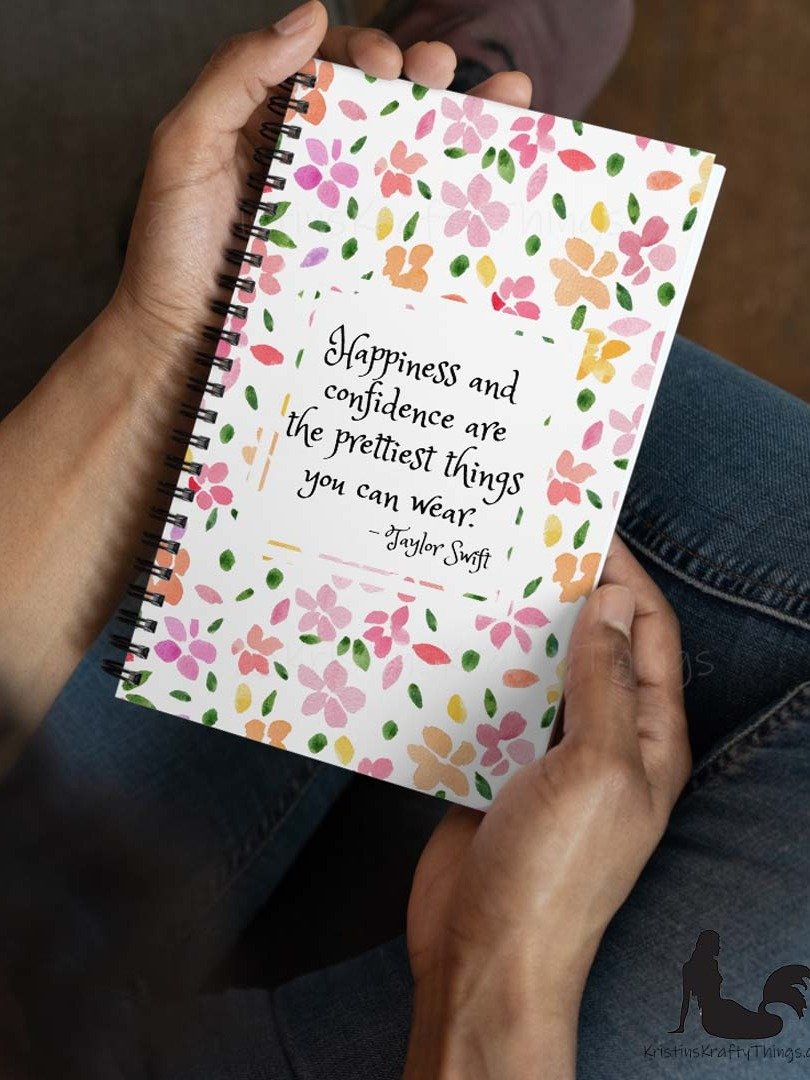 Happiness and
confidence are
the prettiest things
you can wear.
- Taylor Swift
KristinsKraftyThings.